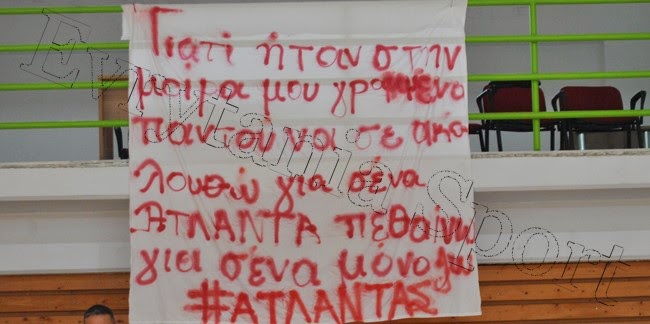 Γιατί ήτον στην
μοίρα μου γραμμένο
παντού να σε ακο
λουθώ για σένα
ΑΤΛΑΝΤΑ πεθαίνω
για σένα μόνο ζω
#ΑΤΛΑΝΤΑΣ
Evrytania Sport